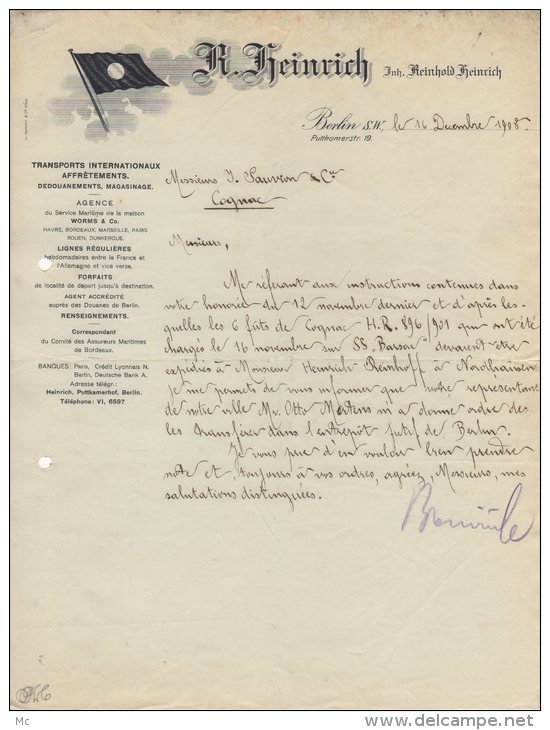 R. Heinrich
Inh. Reinhold Heinrich
Berlin S.W., le 16 Decembre 1908.
Puttkamerstr. 19.
TRANSPORTS INTERNATIONAUX
AFFRÈTEMENTS.
DEDOUANEMENTS, MAGASINAGE.
AGENCE
du Service Maritime de la maison
WORMS & Co.
HAVRE, BORDEAUX, MARSEILLE, PARIS
ROUEN, DUNKERQUE.
LIGNES RÉGULIÈRES
hebdomadaires entre la France et
l'Allemagne et vice versa.
FORFAITS
de localité de départ jusqu'à destination.
AGENT ACCRÉDITÉ
auprès des Douanes de Berlin.
RENSEIGNEMENTS.
Correspondant
du Comité des Assureurs Maritimes
de Bordeaux.
BANQUES: Paris, Crédit Lyonnais N.
Berlin, Deutsche Bank A.
Adresse télégr.:
Heinrich, Puttkamerhof, Berlin.
Téléphone: VI, 6597
Messieurs J. Sauvion & Cie
Cognac
Messieurs,
Me référant aux instructions contenues dans
votre honorée du 12 novembre dernier et d'après les-
quelles les 6 fûts de Cognac H.R. 896/901 qui ont été
chargés le 16 novembre sur SS "Barsac" devaient être
expédiés à Monsieur Heinrich Reinhoff à Nordhausen
je me permets de vous informer que votre représentant
de notre ville Mr. Otto Mertens m'a donné ordre de
les transférer dans l'entrepôt fictif de Berlin.
Je vous prie d'en vouloir bien prendre
note et, toujours à vos ordres, agréez, Messieurs, mes
salutations distinguées.
Mc
delcampe.net